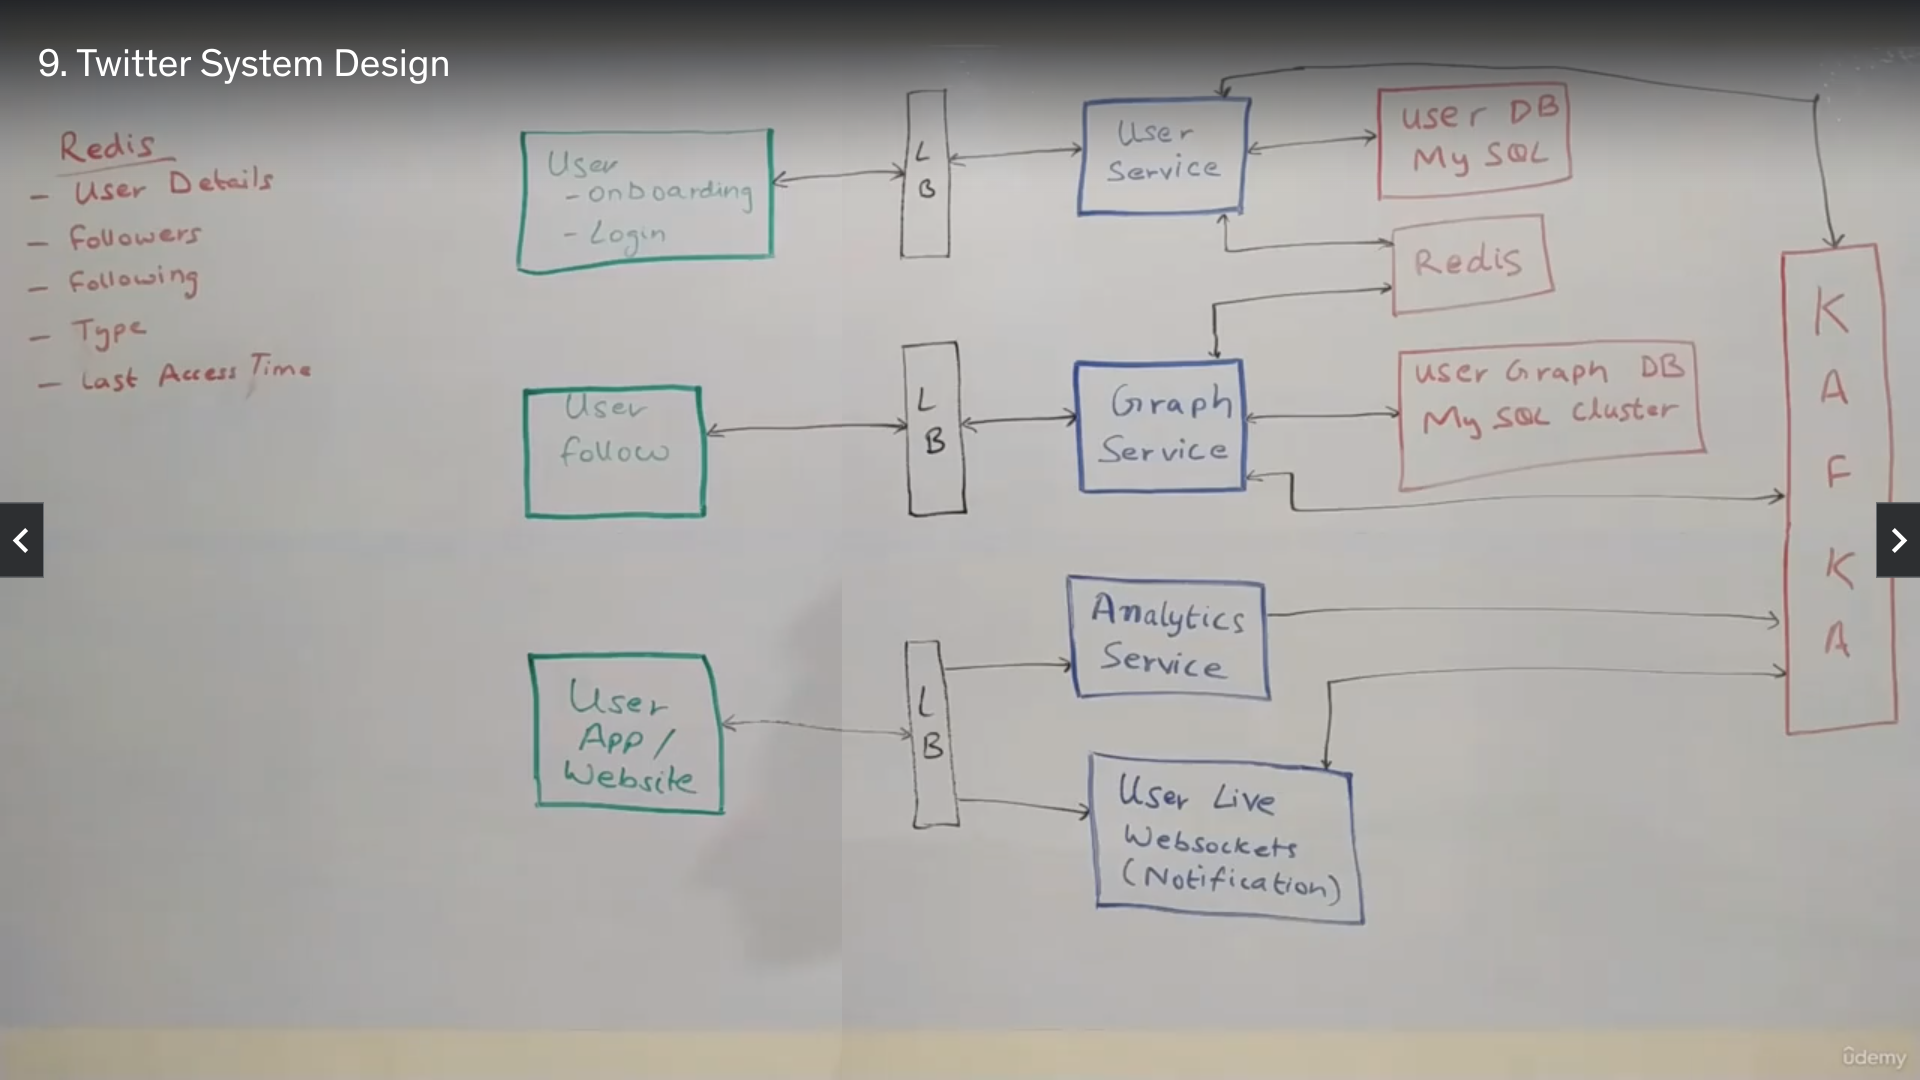 9. Twitter System Design
Redis
- User Details
- Followers
- Following
- Type
- Last Access Time
User
- Onboarding
- Login
L
B
User
Service
User DB
My SQL
Redis
User
follow
L
B
Graph
Service
User Graph DB
My SQL Cluster
K
A
F
K
A
User
App /
Website
L
B
Analytics
Service
User Live
Websockets
(Notification)
ûdemy